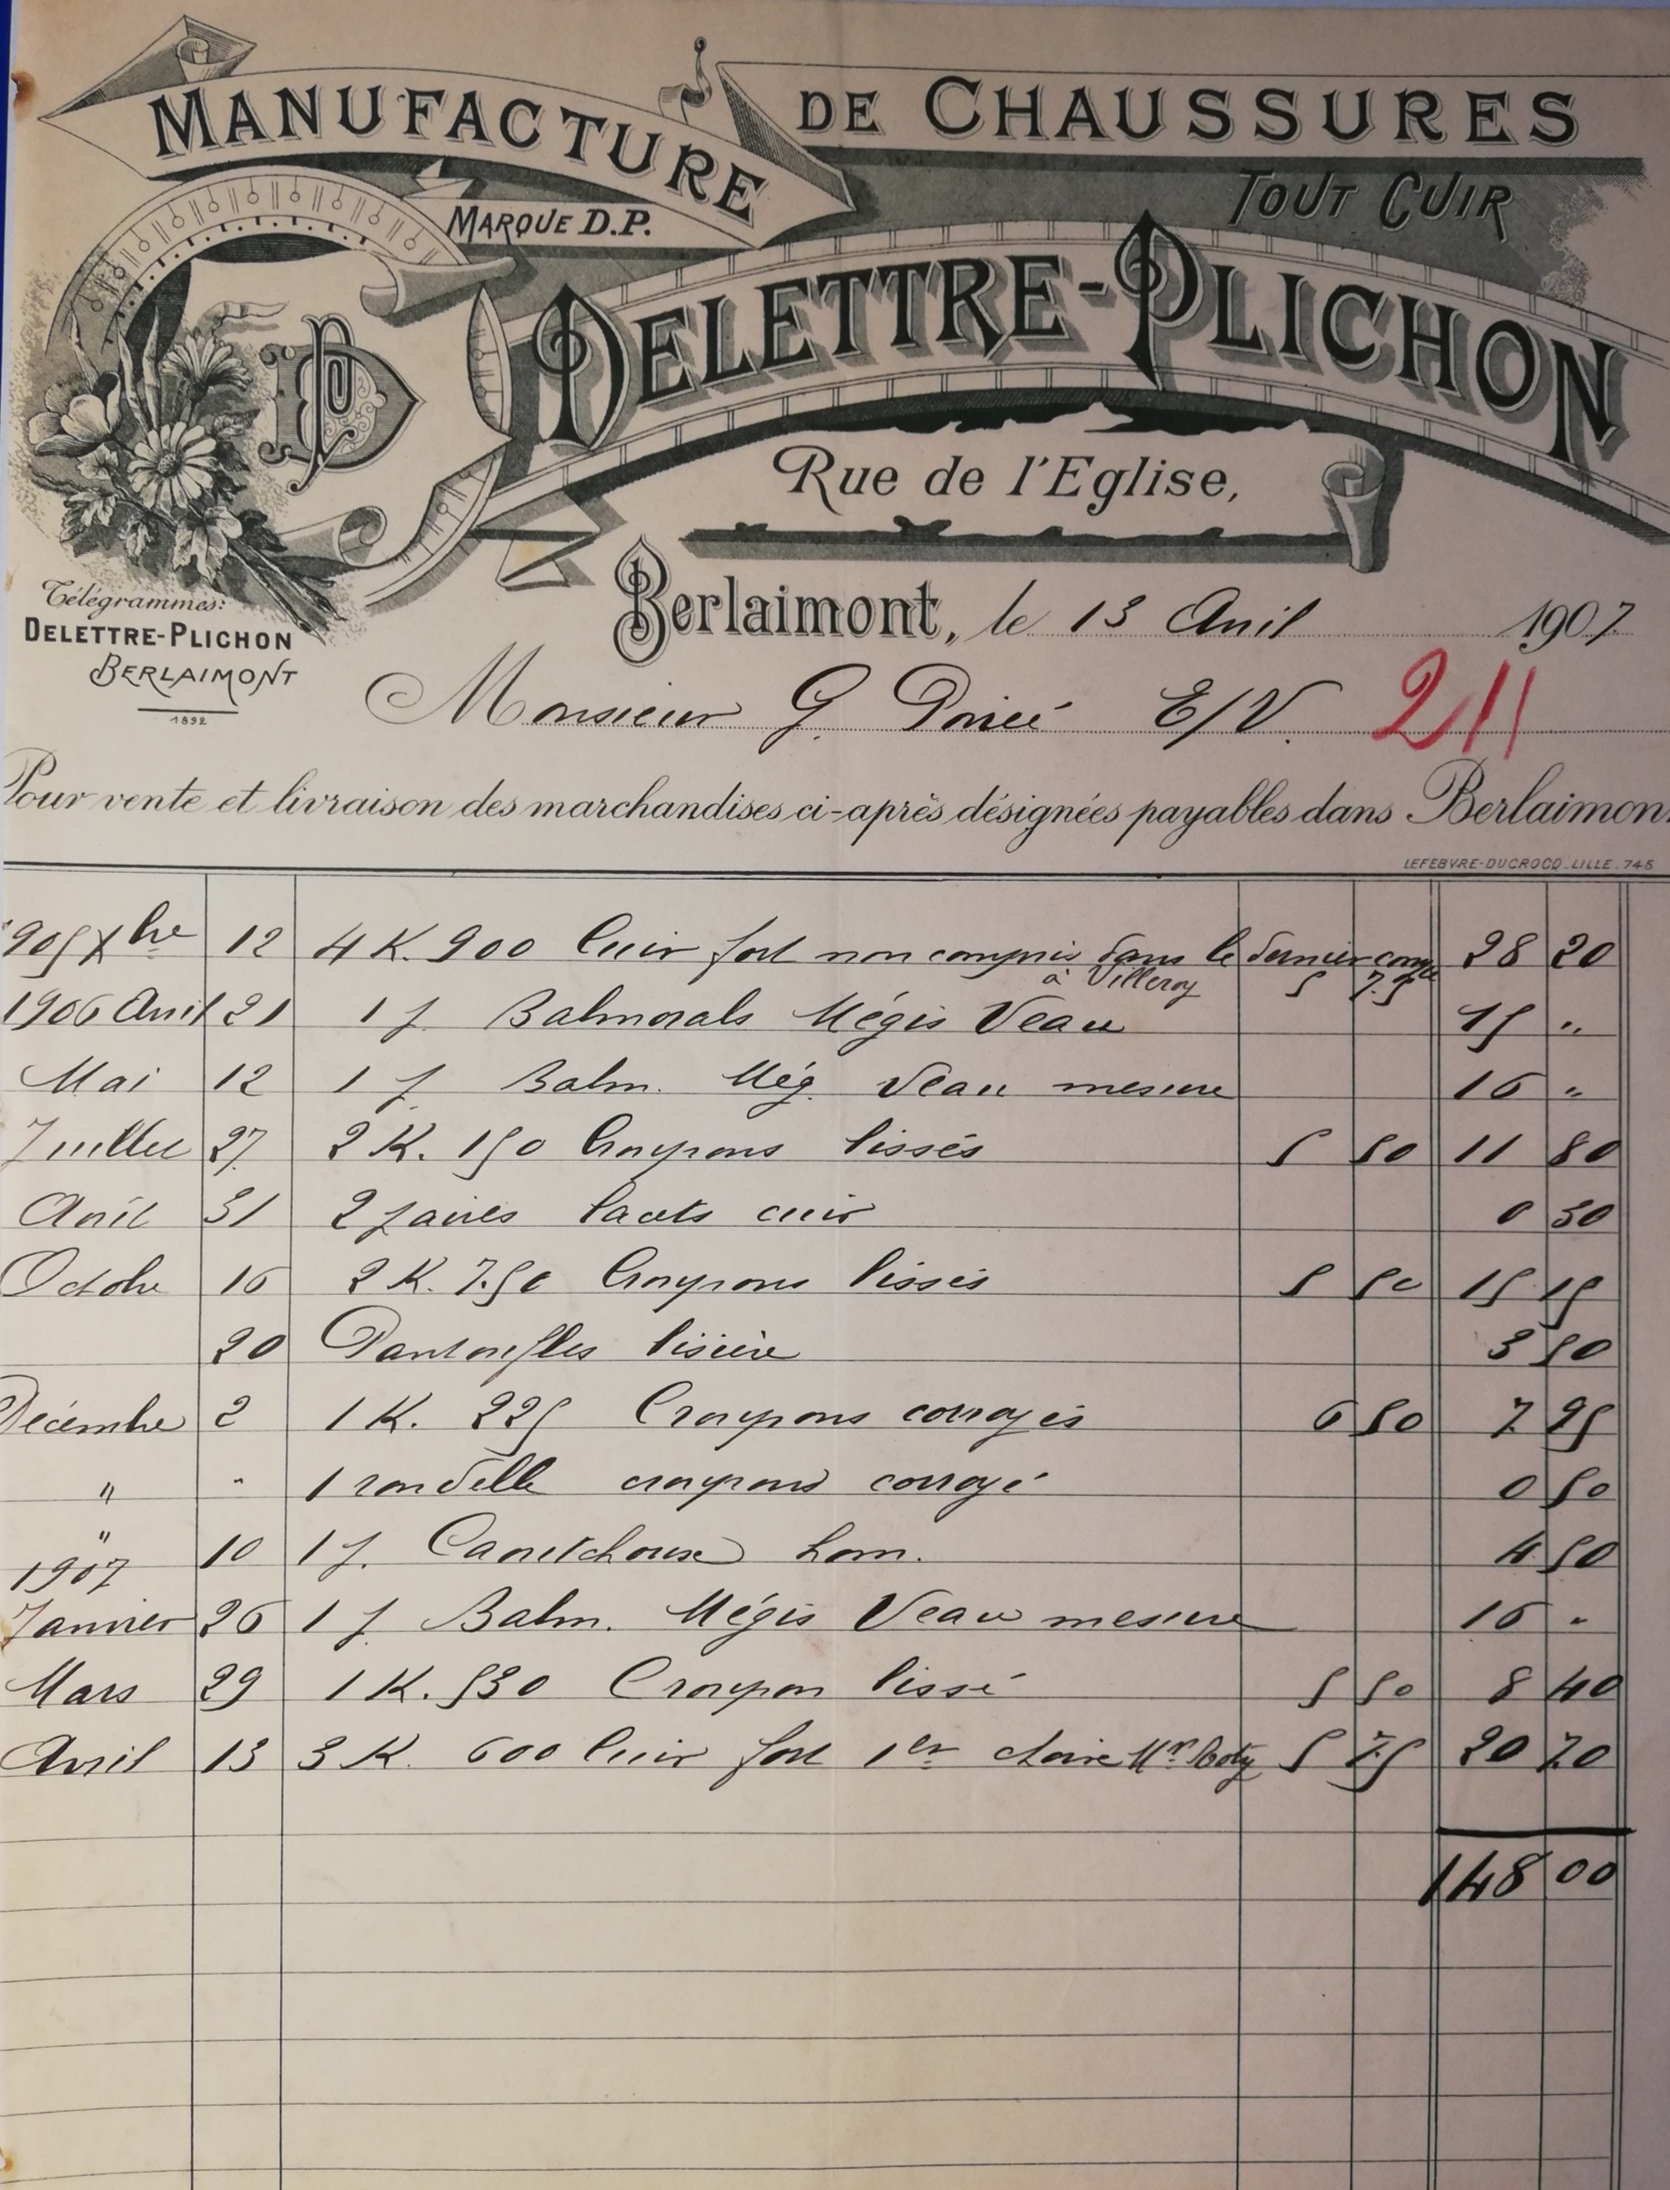 MANUFACTURE DE CHAUSSURES
TOUT CUIR
MARQUE D.P.
DP
DELETTRE-PLICHON
Rue de l'Eglise,
Berlaimont, le 13 Avril 1907.
Télégrammes:
DELETTRE-PLICHON
BERLAIMONT
1892
Monsieur G. E/V. 211
Pour vente et livraison des marchandises ci-après désignées payables dans Berlaimon
LEFEBVRE-DUCROCQ. LILLE. 745
905 Xbre 12 4 K. 900 Cuir fort non compris dans le dernier compte 28 20
à Villeroy 5 75
1906 Avril 21 1 p. Balmorals Mégis Veau 15 "
Mai 12 1 p. Balm. Még. Veau mesure 16 "
Juillet 27 2 K. 150 Croupons lissés 5 50 11 80
31 2 paires lacets cuir 0 30
Octobre 16 2 K. 750 Croupons lissés 5 50 15 15
20 Pantoufles lisière 3 50
Décembre 2 1 K. 225 Croupons corroyés 6 50 7 95
" " 1 rondelle croupons corroyé 0 50
" 10 1 p. Caoutchoucs hom. 4 50
1907
Janvier 26 1 p. Balm. Mégis Veau mesure 16 "
Mars 29 1 K. 530 Croupon lissé 5 50 8 40
Avril 13 3 K. 600 Cuir fort 1er choix Mr 5 75 20 70
148 00